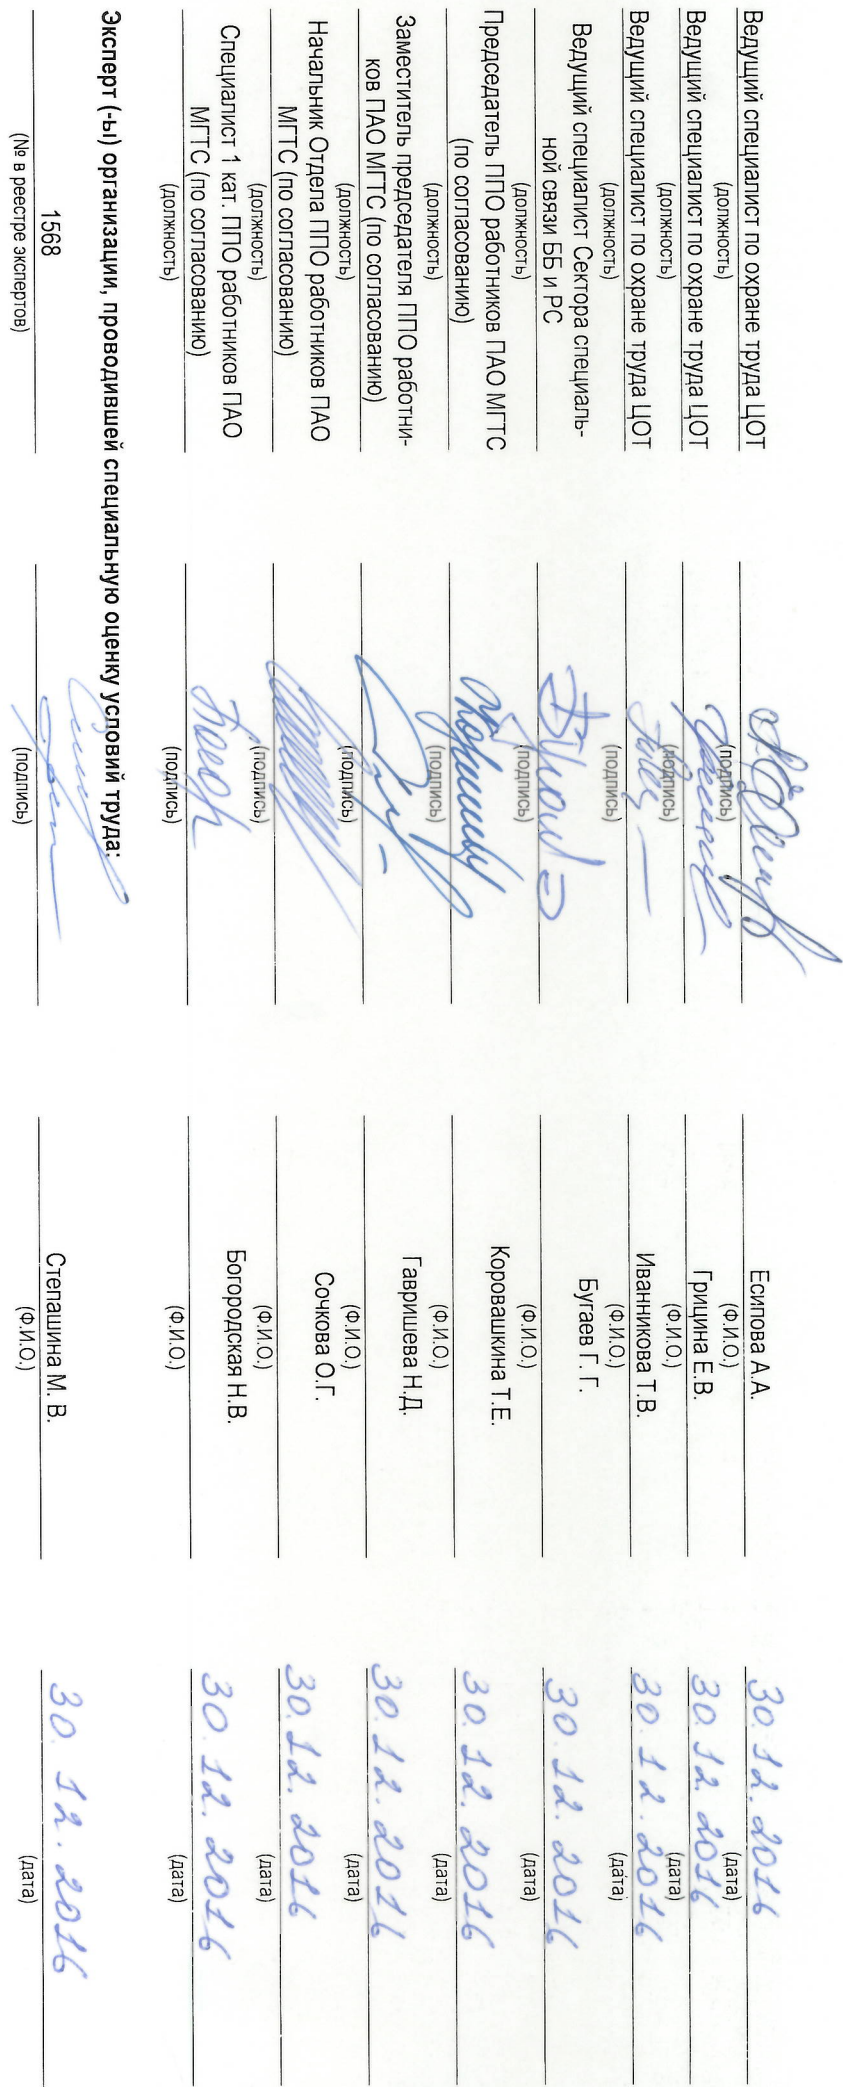 Ведущий специалист по охране труда ЦОТ Есипова А.А. 30.12.2016
(должность) (подпись) (Ф.И.О.) (дата)
Ведущий специалист по охране труда ЦОТ Грицина Е.В. 30.12.2016
(должность) (подпись) (Ф.И.О.) (дата)
Ведущий специалист по охране труда ЦОТ Иванникова Т.В. 30.12.2016
(должность) (подпись) (Ф.И.О.) (дата)
Ведущий специалист Сектора специаль-
ной связи ББ и РС Бугаев Г. Г. 30.12.2016
(должность) (подпись) (Ф.И.О.) (дата)
Председатель ППО работников ПАО МГТС
(по согласованию) Коровашкина Т.Е. 30.12.2016
(должность) (подпись) (Ф.И.О.) (дата)
Заместитель председателя ППО работни-
ков ПАО МГТС (по согласованию) Гавришева Н.Д. 30.12.2016
(должность) (подпись) (Ф.И.О.) (дата)
Начальник Отдела ППО работников ПАО
МГТС (по согласованию) Сочкова О.Г. 30.12.2016
(должность) (подпись) (Ф.И.О.) (дата)
Специалист 1 кат. ППО работников ПАО
МГТС (по согласованию) Богородская Н.В. 30.12.2016
(должность) (подпись) (Ф.И.О.) (дата)
Эксперт (-ы) организации, проводившей специальную оценку условий труда:
1568 Степашина М. В. 30.12.2016
(№ в реестре экспертов) (подпись) (Ф.И.О.) (дата)